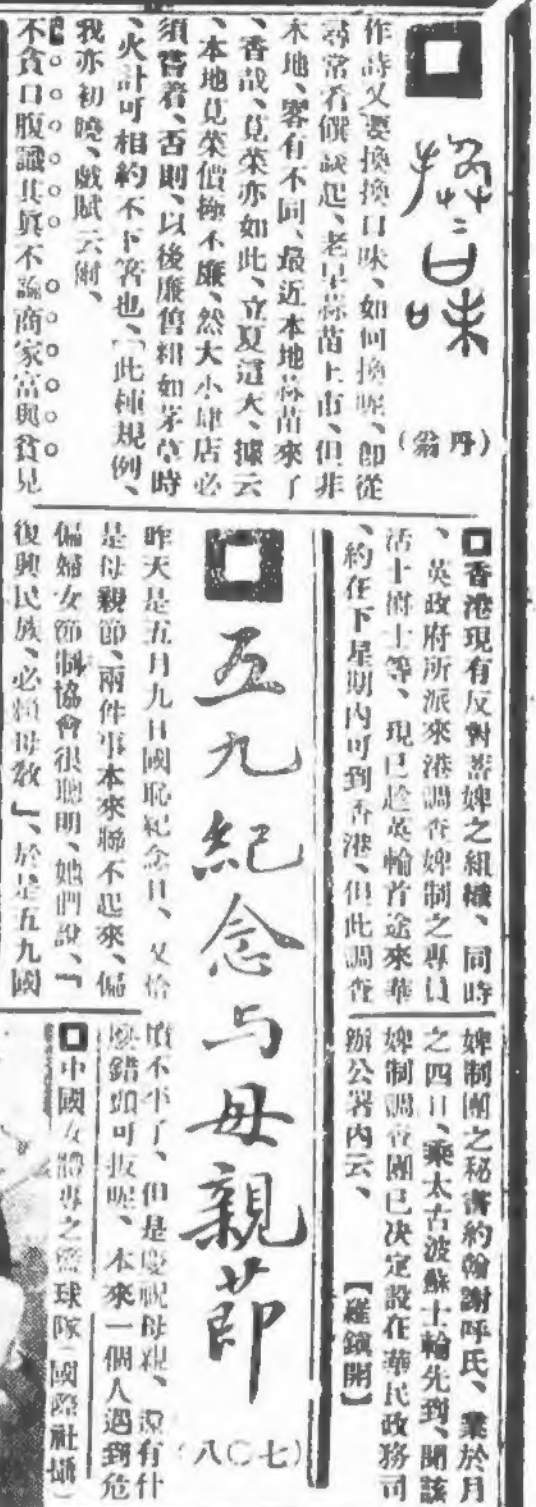 換口味
（丹翁）
作詩又要換換口味、如何換呢、卽從
尋常看饌談起、老早蒜苗上市、但非
本地、畧有不同、最近本地蒜苗來了
、香哉、莧菜亦如此、立夏這天、據云
、本地莧菜價極不廉、然大小肆店必
須嘗着、否則、以後廉舊柑如茅草時
、火計可相約不下箸也、此種規例、
我亦初曉、戲賦云爾、
不貪口腹識其眞不論商家富與貧見
香港現有反對蓄婢之組織、同時
、英政府所派來港調查婢制之專員
活士樹士等、現已趁英輪首途來華
、約在下星期內可到香港、但此調查
婢制團之秘書約翰謝呼氏、業於月
之四日、乘太古波蘇士輪先到、聞該
婢制調查團已决定設在華民政務司
辦公署內云、【羅鎮開】
五九紀念与母親節
（七〇八）
昨天是五月九日國恥紀念日、又恰
是母親節、兩件事本來聯不起來、偏
偏婦女節制協會很聰明、她們說、『
復興民族、必賴母敎』、於是五九國
但是慶祝母親、還有什
麼錯頭可扳呢、本來一個人遇到危
中國女體專之籃球隊（國際社攝）